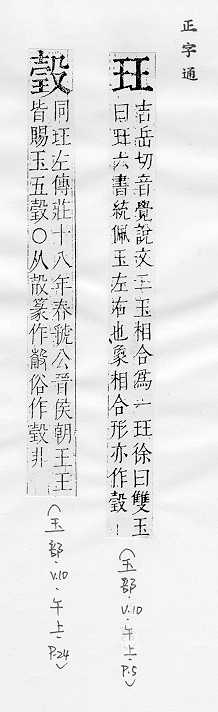 正字通
玨
吉岳切音覺說文二玉相合爲一玨徐曰雙玉
曰玨六書統佩玉左右也象相合形亦作瑴
(玉部.V.10.午上.P.5)
瑴
同玨左傳莊十八年春虢公晉侯朝王王
皆賜玉五瑴〇从㱿篆作 俗作瑴非
(玉部.V.10.午上.P.24)